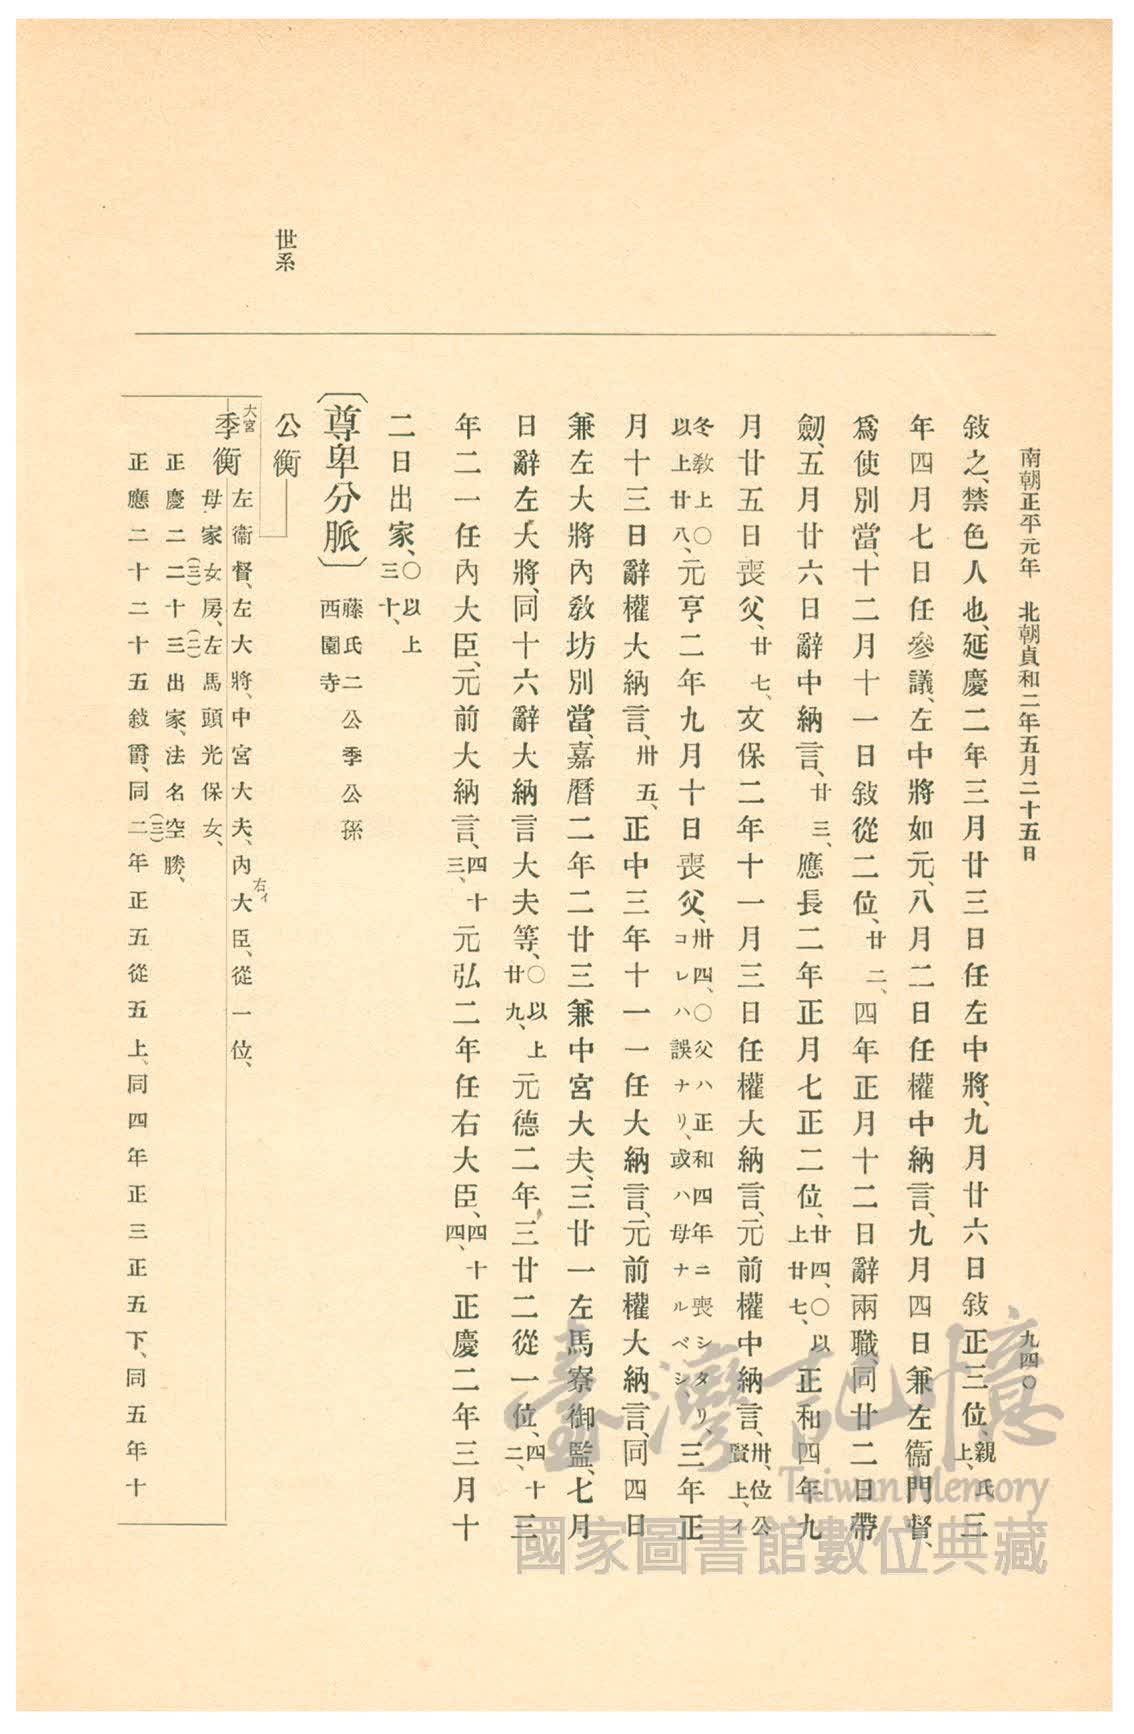 南朝正平元年　北朝貞和二年五月二十五日
九四〇
敍之、禁色人也、延慶二年三月廿三日任左中將、九月廿六日敍正三位、親氏上、三
年四月七日任參議、左中將如元、八月二日任權中納言、九月四日兼左衞門督、
爲使別當、十二月十一日敍從二位、廿二、四年正月十二日辭兩職同廿二日帶
劒、五月廿六日辭中納言、廿三、應長二年正月七正二位、廿四、〇以上廿七、正和四年九
月廿五日喪父、廿七、文保二年十一月三日任權大納言、元前權中納言、卅、位公賢上、イ
冬敎上〇以上廿八、元亨二年九月十日喪父、卅四、〇父ハ正和四年ニ喪シタリ、コレハ誤ナリ、或ハ母ナルベシ、三年正
月十三日辭權大納言、卅五、正中三年十一一任大納言、元前權大納言、同四日
兼左大將內敎坊別當、嘉曆二年二廿三兼中宮大夫、三廿一左馬寮御監、七月
日辭左大將、同十六辭大納言大夫等、〇以上廿九、元德二年、三廿二從一位、四十二、三
年二一任內大臣、元前大納言、四十三、元弘二年任右大臣、四十四、正慶二年三月十
二日出家、〇以上三十、
〔尊卑分脈〕　藤氏二公季公孫西園寺
世系
公衡
大宮
季衡　左衞督、左大將、中宮大夫、內大臣、從一位、
右イ
母家女房、左馬頭光保女、
正慶二二十三出家、法名空勝、
(三)(二)
正應二十二十五敍爵、同二年正五從五上、同四年正三正五下、同五年十
(三)
臺灣記憶
Taiwan Memory
國家圖書館數位典藏